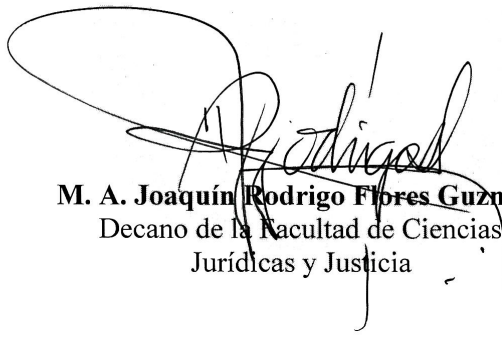 M. A. Joaquín Rodrigo Flores Guzm
Decano de la Facultad de Ciencias
Jurídicas y Justicia